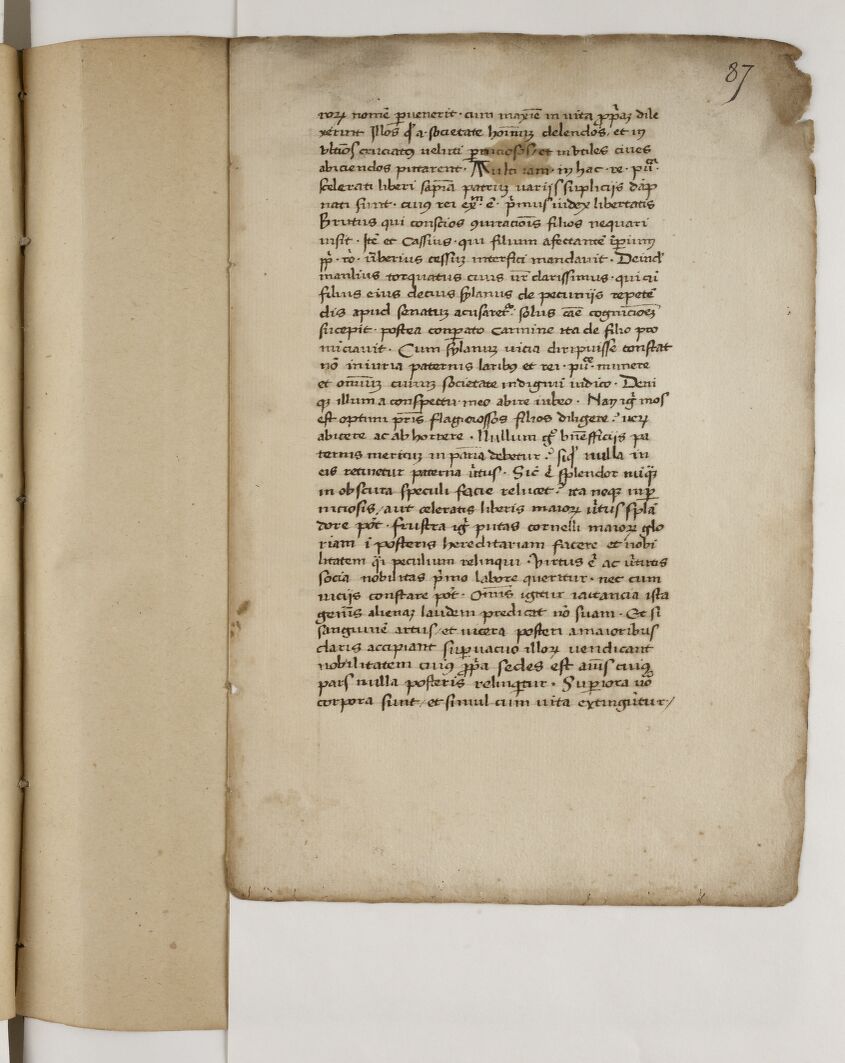 87
rorꝝ nomē ꝑuenerit · cum maxīe in uita ꝓpriaꝫ dile
xerint Illos qͥ a societate homiūꝫ delendos / et in
cruciatꝰ uelūti ꝑniciosos / et inutiles ciues
abiciendos putarent · Multi iam · in hac · re · pu.ᶜᵃ ·
scelerati liberi patriuꝫ uariis supliciis dāp
nati sunt · cuiꝰ rei exᵐ · ē · pͥmus uidex libertatis
Brutus qui conscios ꝯiuracionis filios nequari
iusit · Itē et Cassius · qui filium afectantē īperium
pp̄ · ro · uberius cessuꝫ interfici mandauit · Deindͤ
manlius torquatus ciuis ur̄ clarissimus · qui cū
filius eius decius sylanus de pecuniis repetē
dis apud senatuꝫ acusaretͬ · solus cāe cognicioneꝫ
sucepit · postea conꝑato Carmine ita de filio pro
nūciauit · Cum sylanuꝫ uicia diripuisse constat
nō iniuria paternis laribꝰ et rei · pu.ᶜᵉ · munere
et omniuꝫ ciuiuꝫ societate indignū iudico · Deni
qꝫ illum a conspectu meo abire iubeo · Naꝫ igͥ mos
est optimi pr̄is flagiciossos filios diligere · uerꝫ
abicere ac abhorrere · Nullum gͦ bn̄efficiis pa
ternis merituꝫ in pāria debetur · siqͥ nulla in
eis retinetur paterna uͥtus · Sic ē splendor nūqͣꝫ
in obscura speculi facie relucet · ita neqꝫ in ꝑ
niciosis / aut celeratis liberis maiorꝝ uͥtus splā
dore pōt · frustra igͥ putas cornelli maiorꝝ glo
riam ī posteris hereditariam facere et nobi
litatem qͣi peculium relinqui · Virtus ē ac uͥtutis
socia nobilitas pͥmo labore queritur · nec cum
uiciis constare pōt · Omīs igitur iactancia ista
genīs alienaꝫ laudem predicat nō suam · Et si
sanguinē artus / et uicera posteri a maioribus
claris accipiant suꝑuacuo illorꝝ uendicant
nobilitatem cuiꝰ ꝓpͥa sedes est aīus cuiꝰqꝫ
pars nulla posteris relinqͥtur · Suꝑiora uͦo
corpora sunt / et simul cum uita extinguͥtur /